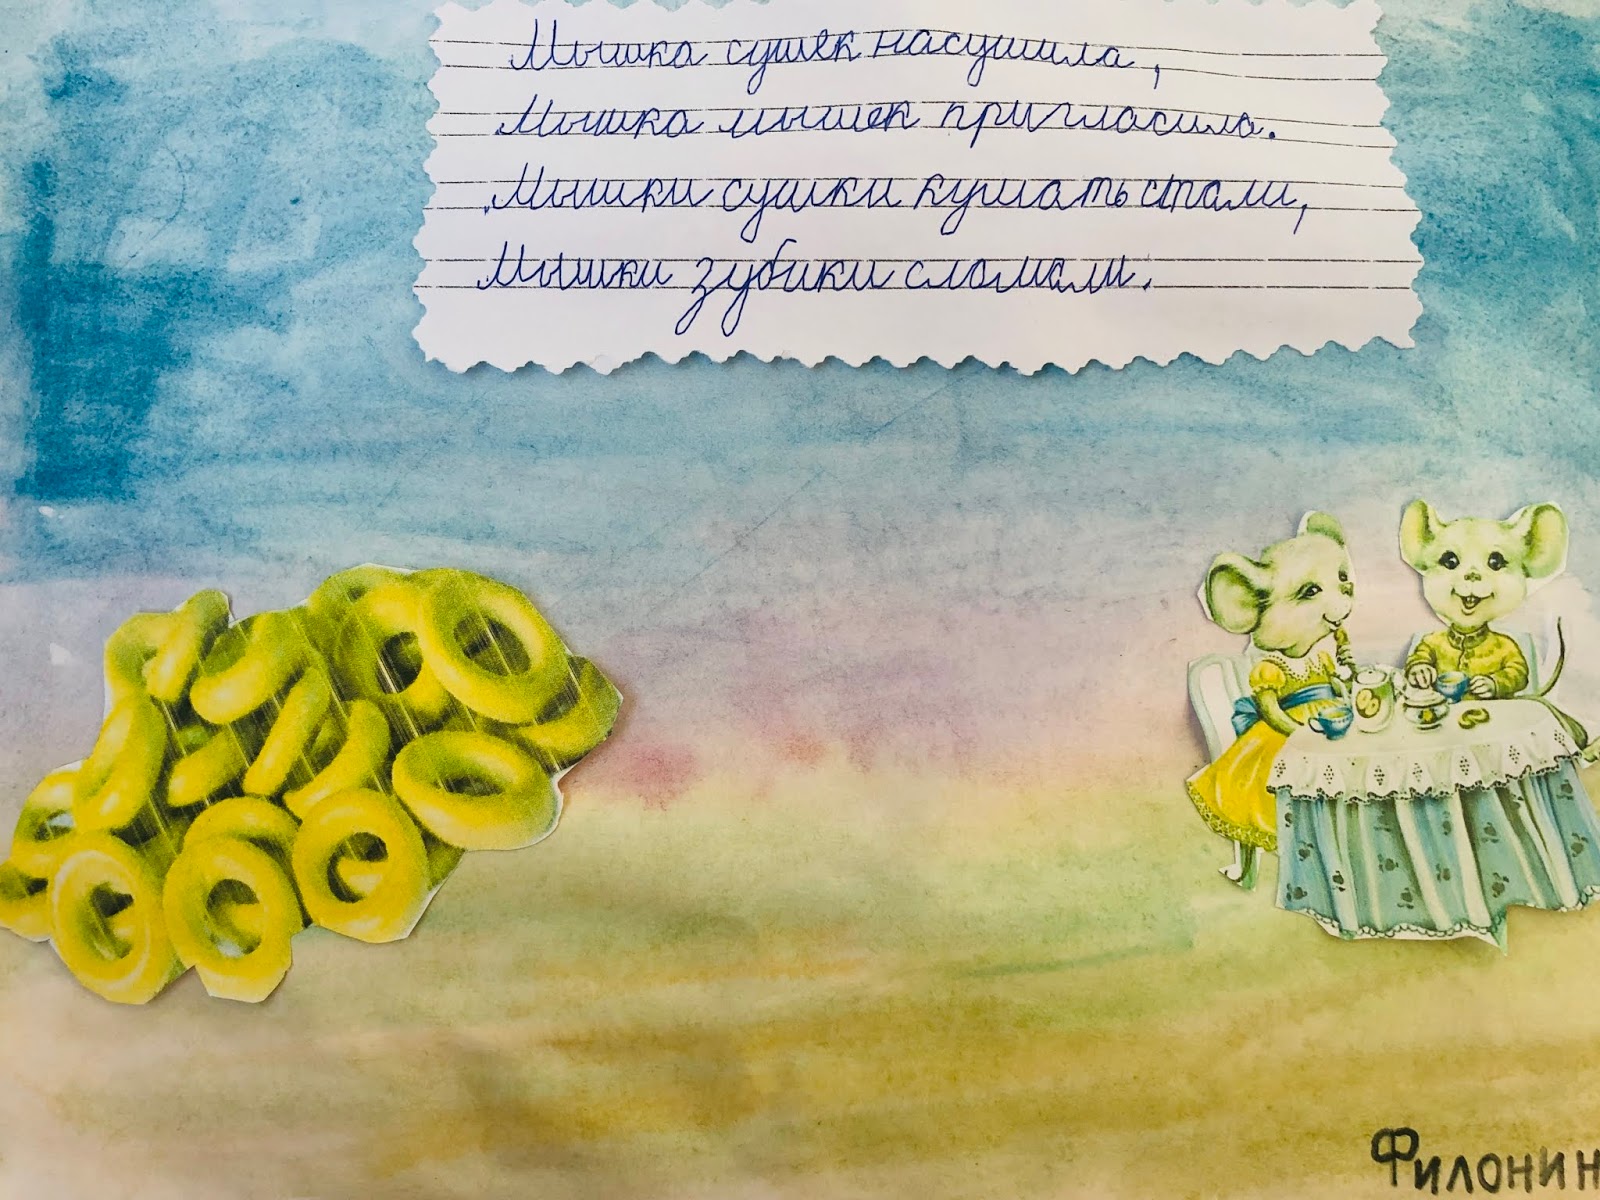 Мышка сушек насушила,
Мышка мышек пригласила.
Мышки сушки кушать стали,
Мышки зубики сломали.
Филонин